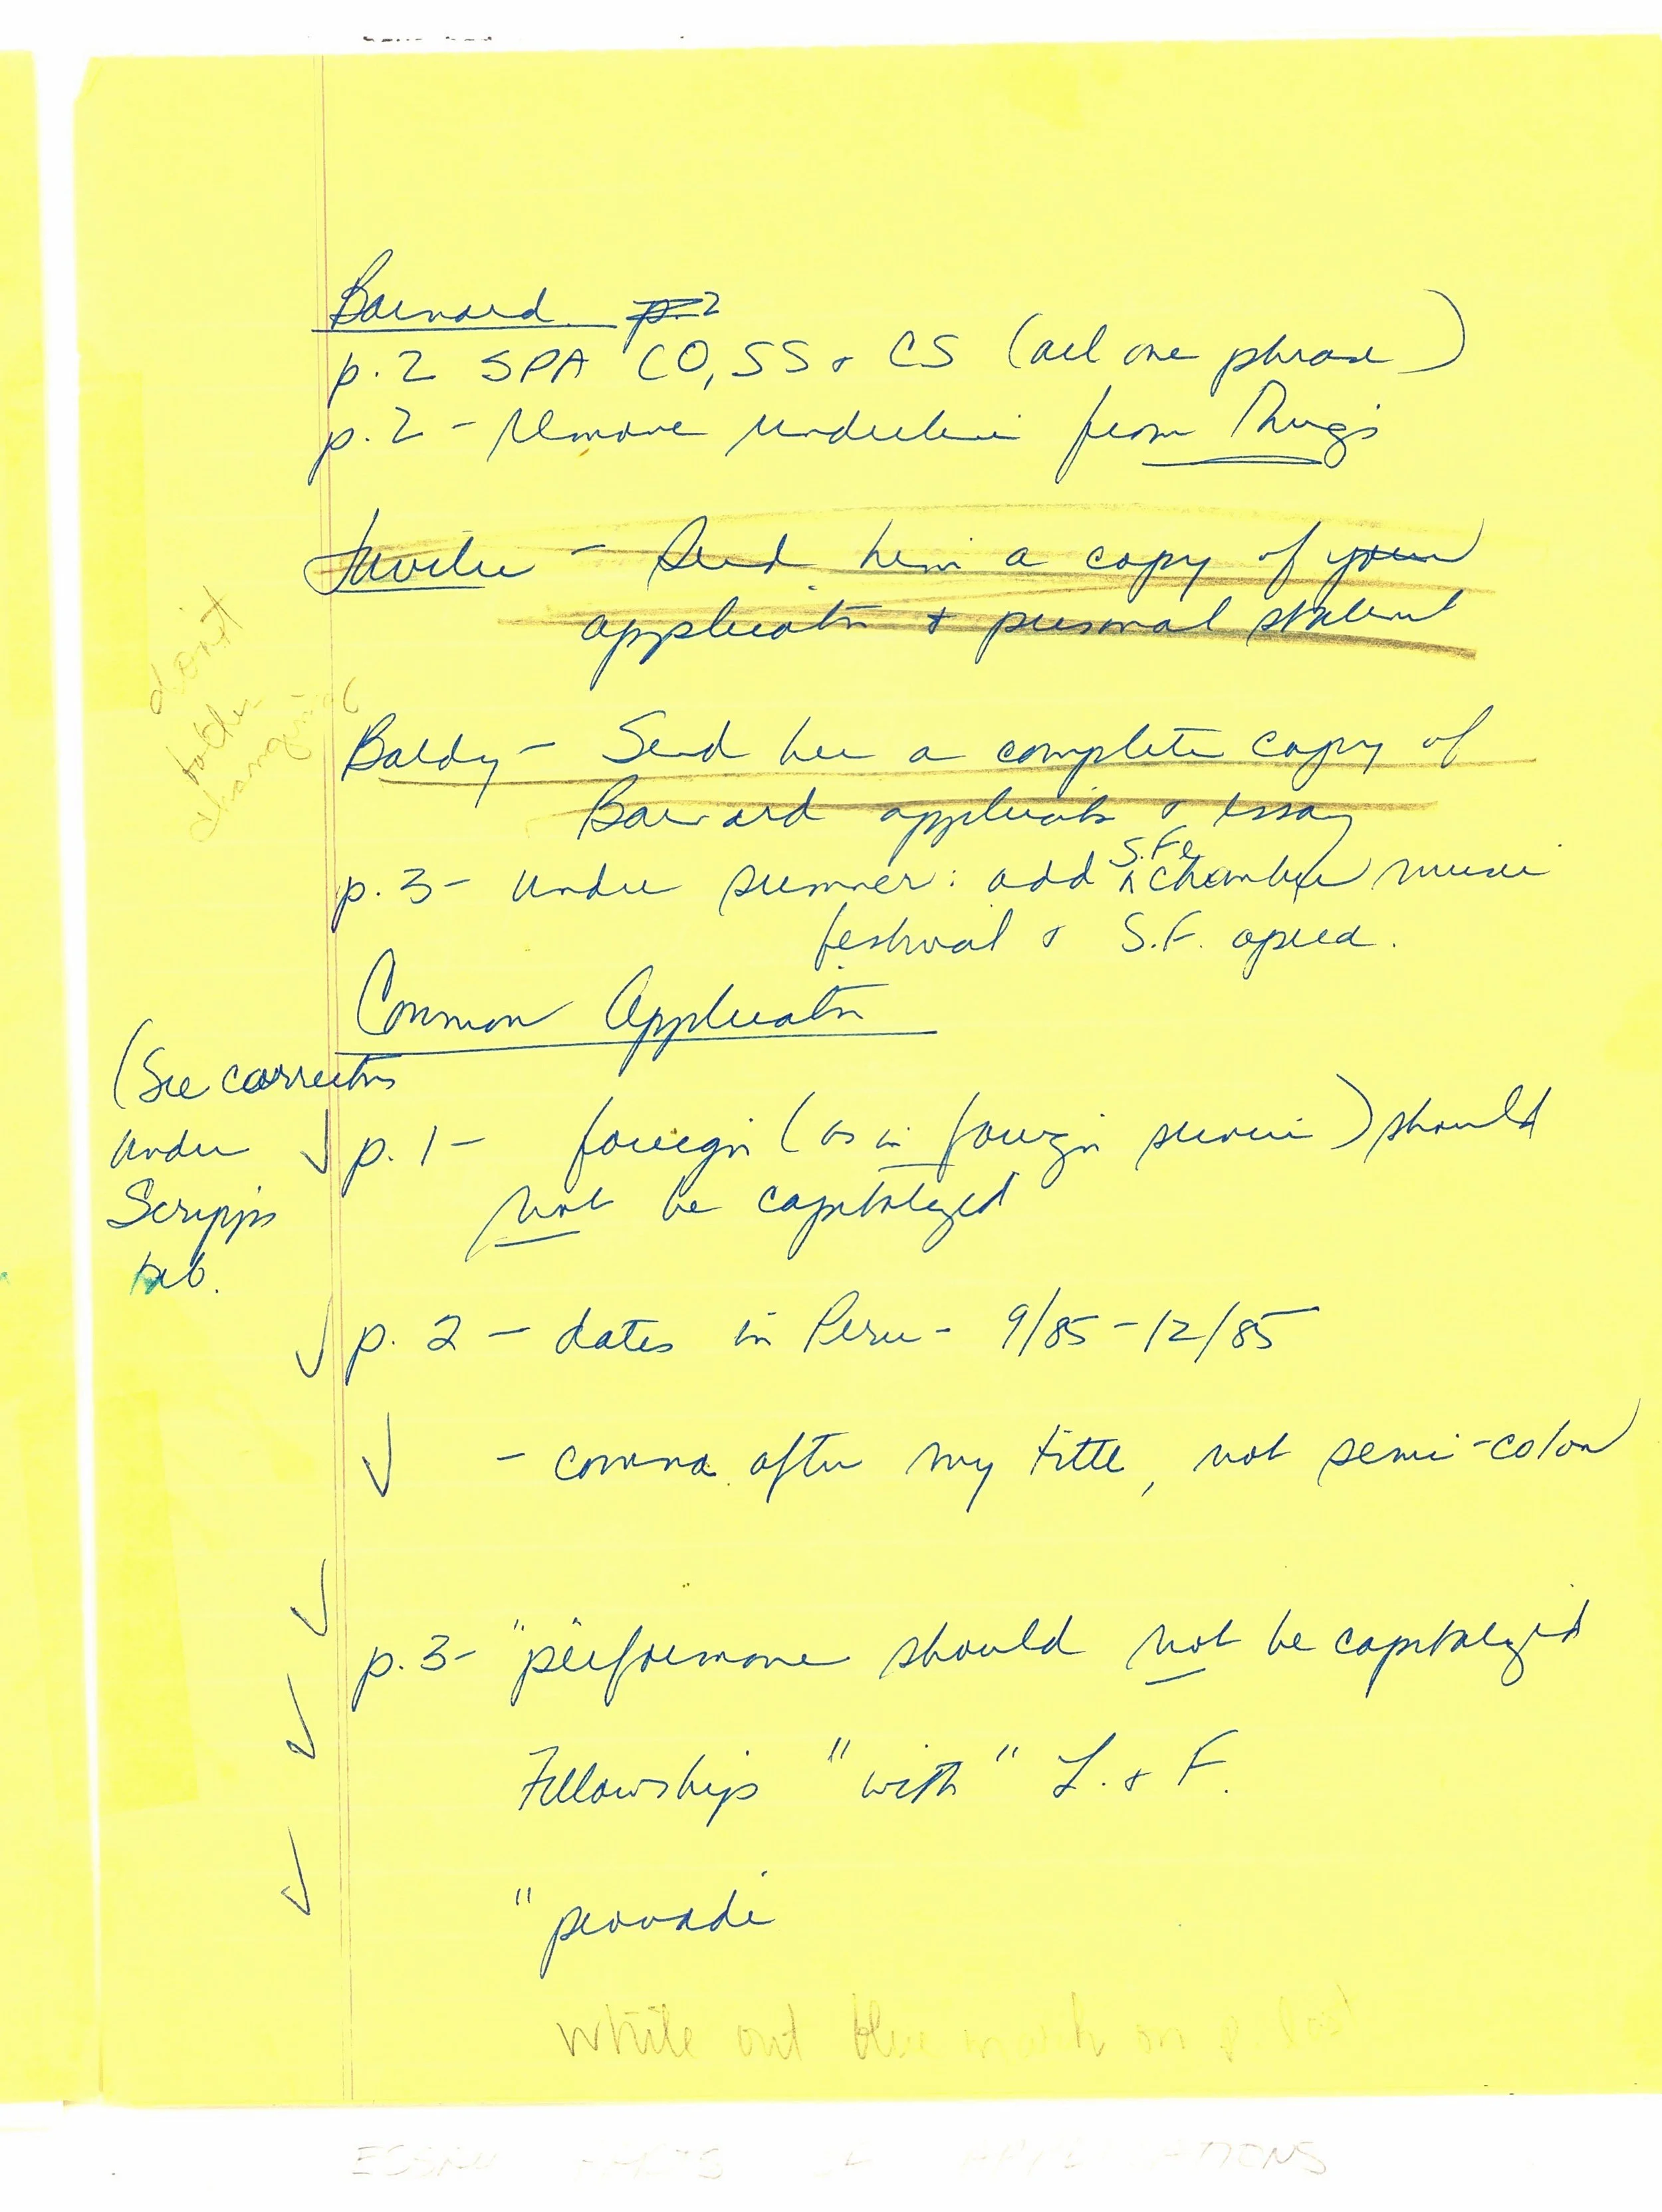 Barnard p.2
p.2 SPA CO, SS & CS (all one phrase)
p.2 - remove underline from Things
Javier - Send him a copy of your
applicatn + personal statement
don't
bother
changing
Baldy - Send her a complete copy of
Barnard applicatn & essay
p.3 - under summer: add S.Fe chamber music
festival & S.F. opera.
Common Applicatn
(See correctns
under
Scripps
tab.
p.1 - foreign (as in foreign service) should
not be capitalized
p.2 - dates in Peru - 9/85 - 12/85
- comma after my title, not semi-colon
p.3 - "performance should not be capitalized
Fellowships "with" L. & F.
"
white out blue mark on